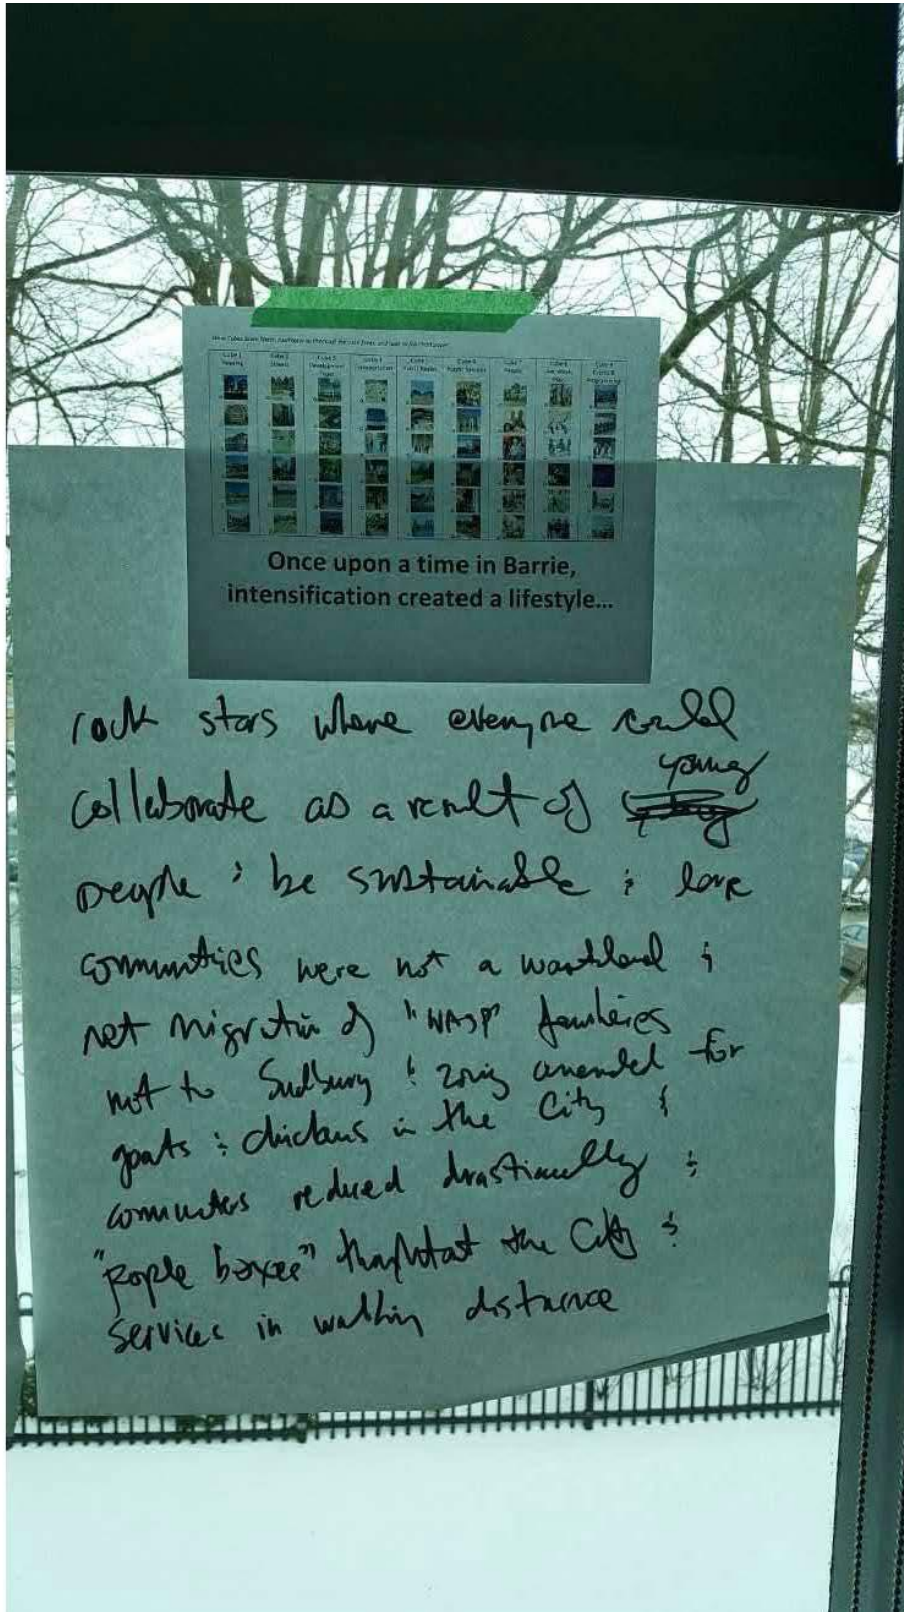 Cube 1 Cube 2 Cube 3 Cube 6 Cube 7
Streets Development People
Once upon a time in Barrie,
intensification created a lifestyle...
rock stars where everyone could
collaborate as a result of young
people & be sustainable & love
communities were not a wasteland &
net migration of "WASP" families
not to Sudbury & zoning amended for
goats & chickens in the City &
commuters reduced drastically &
"people boxes" the City &
services in walking distance